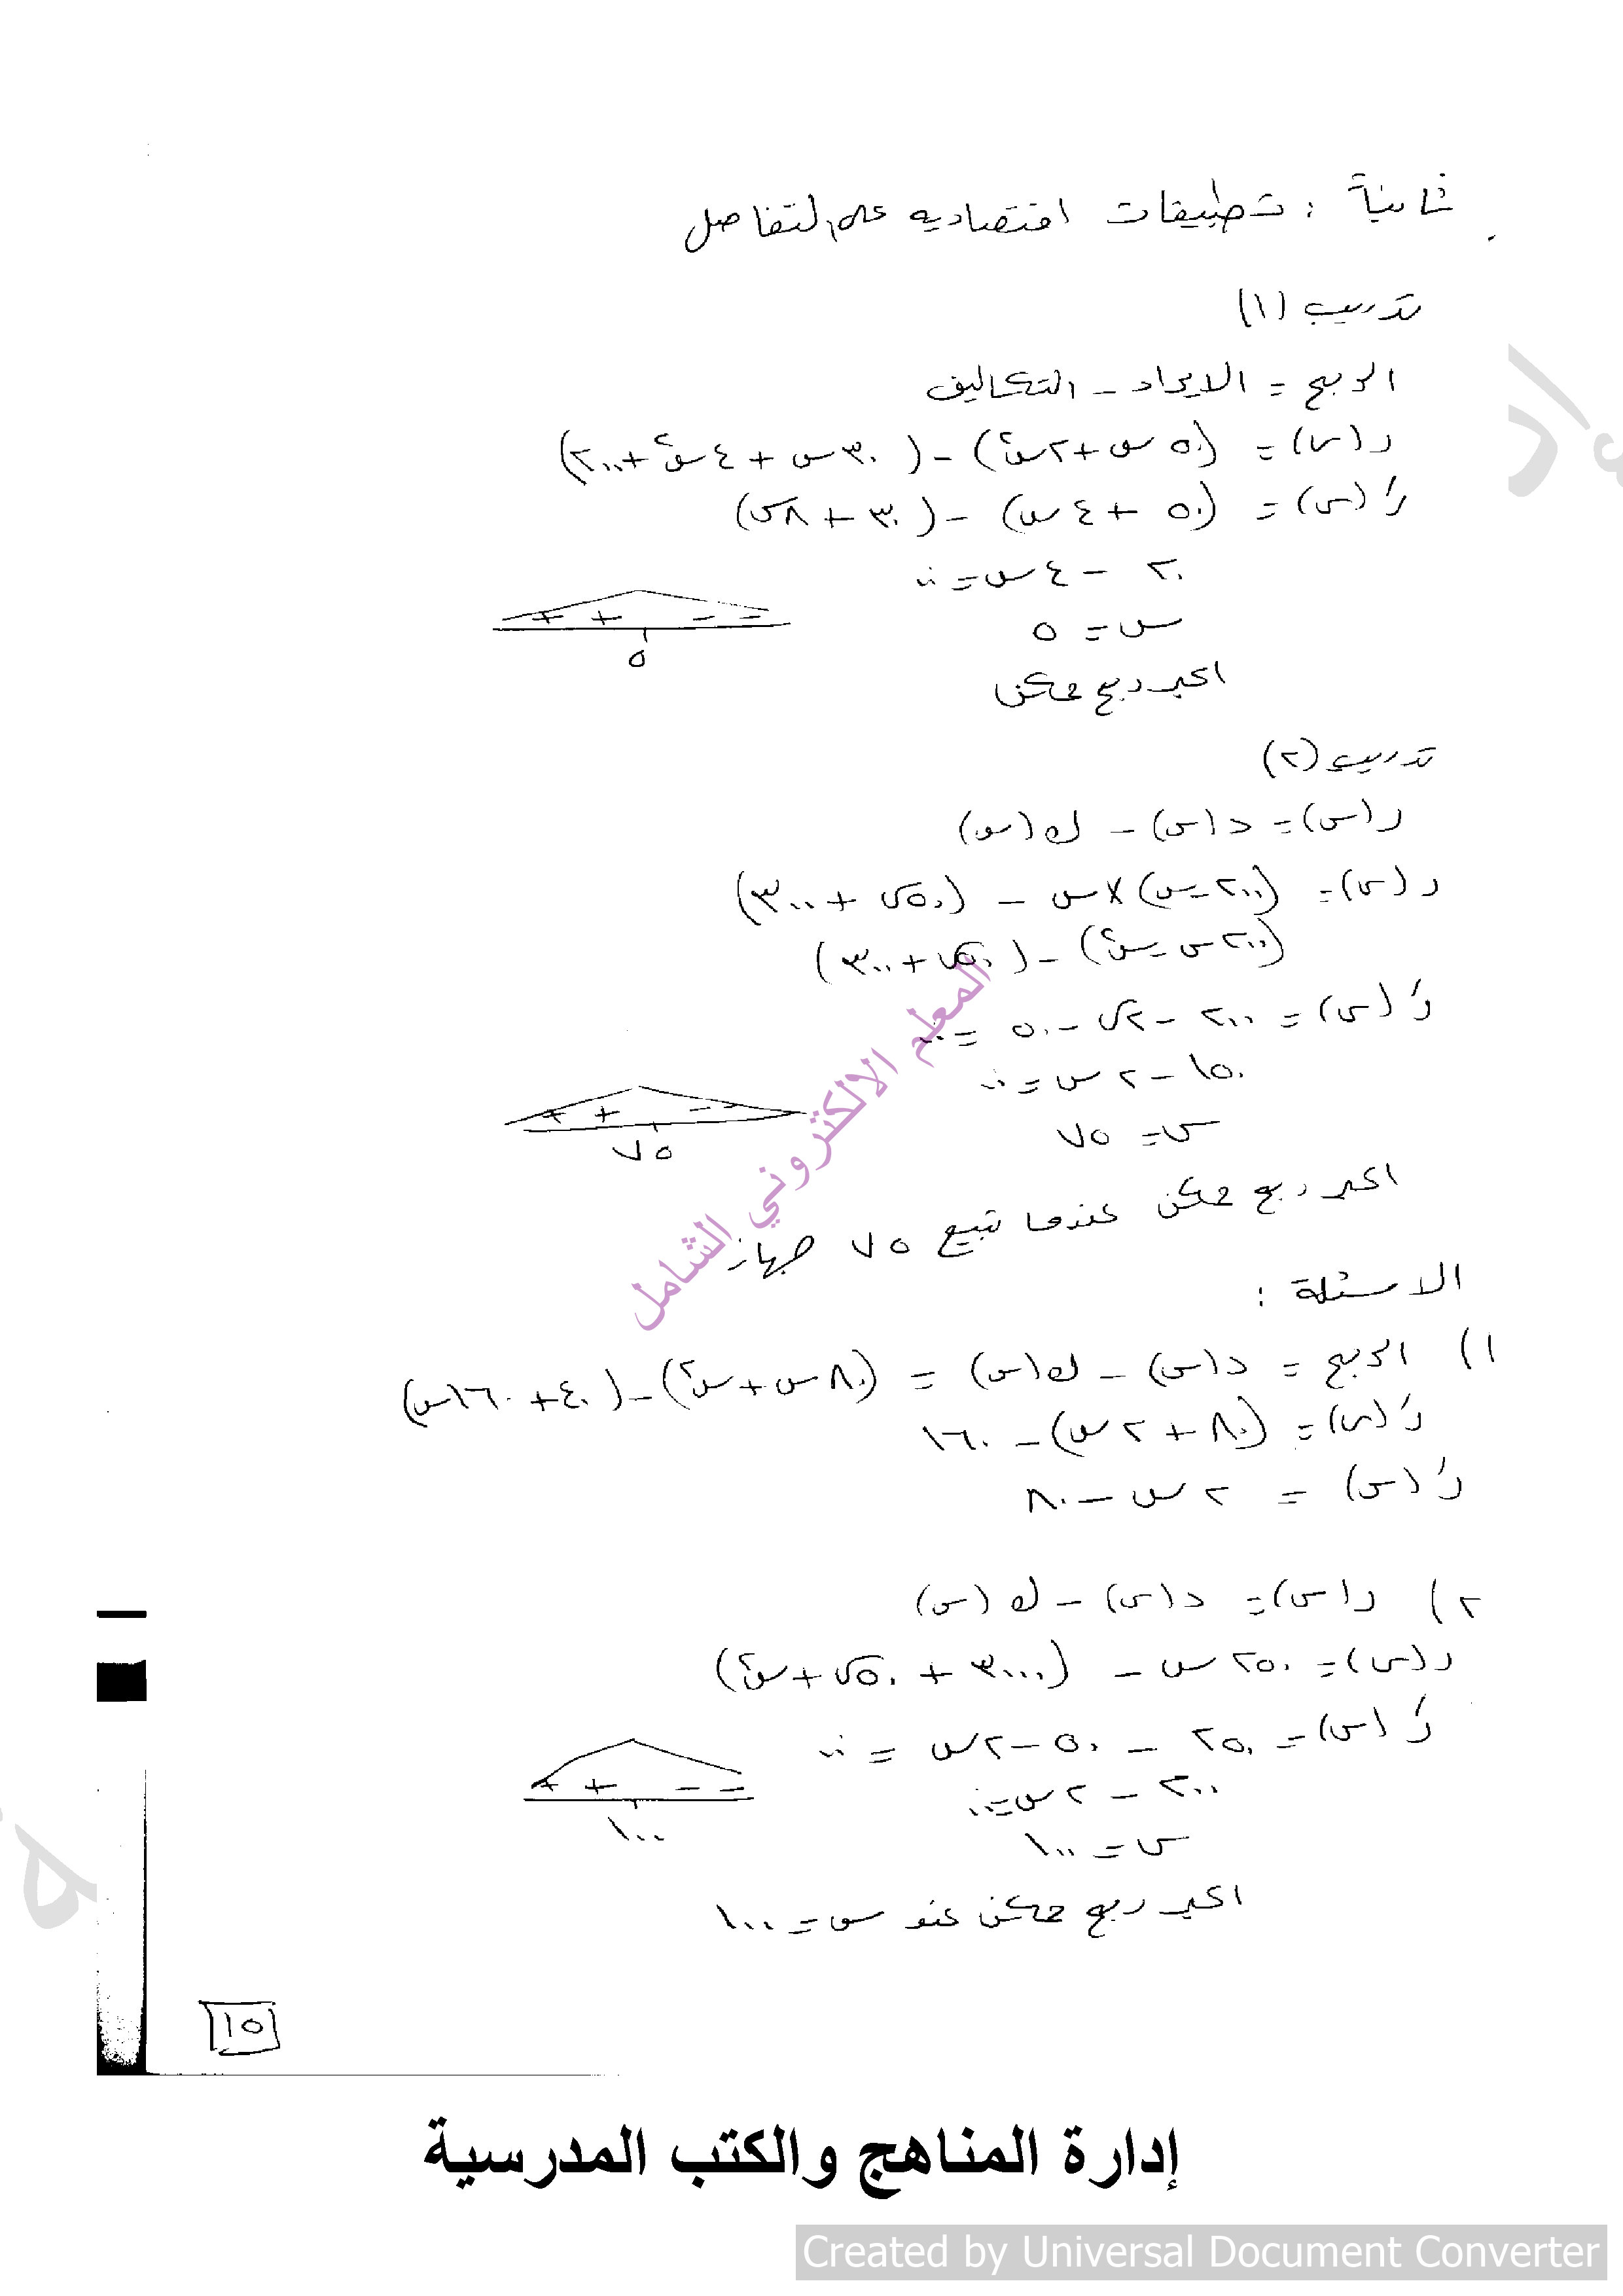 ثانياً : تطبيقات اقتصاديه على التفاضل
تدريب (١)
الربح = الايراد - التكاليف
ر(س) = (٥٠س + ٢س²) - (٣٠س + ٤س² + ٢٠٠)
رَ(س) = (٥٠ + ٤س) - (٣٠ + ٨س)
٢٠ - ٤س = ٠
س = ٥
+ + - -
٥
اكبر ربح ممكن
تدريب (٢)
ر(س) = د(س) - ك(س)
ر(س) = (٢٠٠ - س) × س - (٥٠س + ٣٠٠)
(٢٠٠س - س²) - (٥٠س + ٣٠٠)
رَ(س) = ٢٠٠ - ٢س - ٥٠ = ٠
١٥٠ - ٢س = ٠
س = ٧٥
+ + - -
٧٥
اكبر ربح ممكن عندما تبيع ٧٥ جهاز
الاسئلة :
١) الربح = د(س) - ك(س) = (٨٠س + س²) - (٤٠ + ١٦٠س)
رَ(س) = (٨٠ + ٢س) - ١٦٠
رَ(س) = ٢س - ٨٠
٢) ر(س) = د(س) - ك(س)
ر(س) = ٢٥٠س - (٣٠٠٠ + ٥٠س + س²)
رَ(س) = ٢٥٠ - ٥٠ - ٢س = ٠
٢٠٠ - ٢س = ٠
س = ١٠٠
+ + - -
١٠٠
اكبر ربح ممكن عند س = ١٠٠
١٥
المعلم الالكتروني الشامل
إدارة المناهج والكتب المدرسية
Created by Universal Document Converter